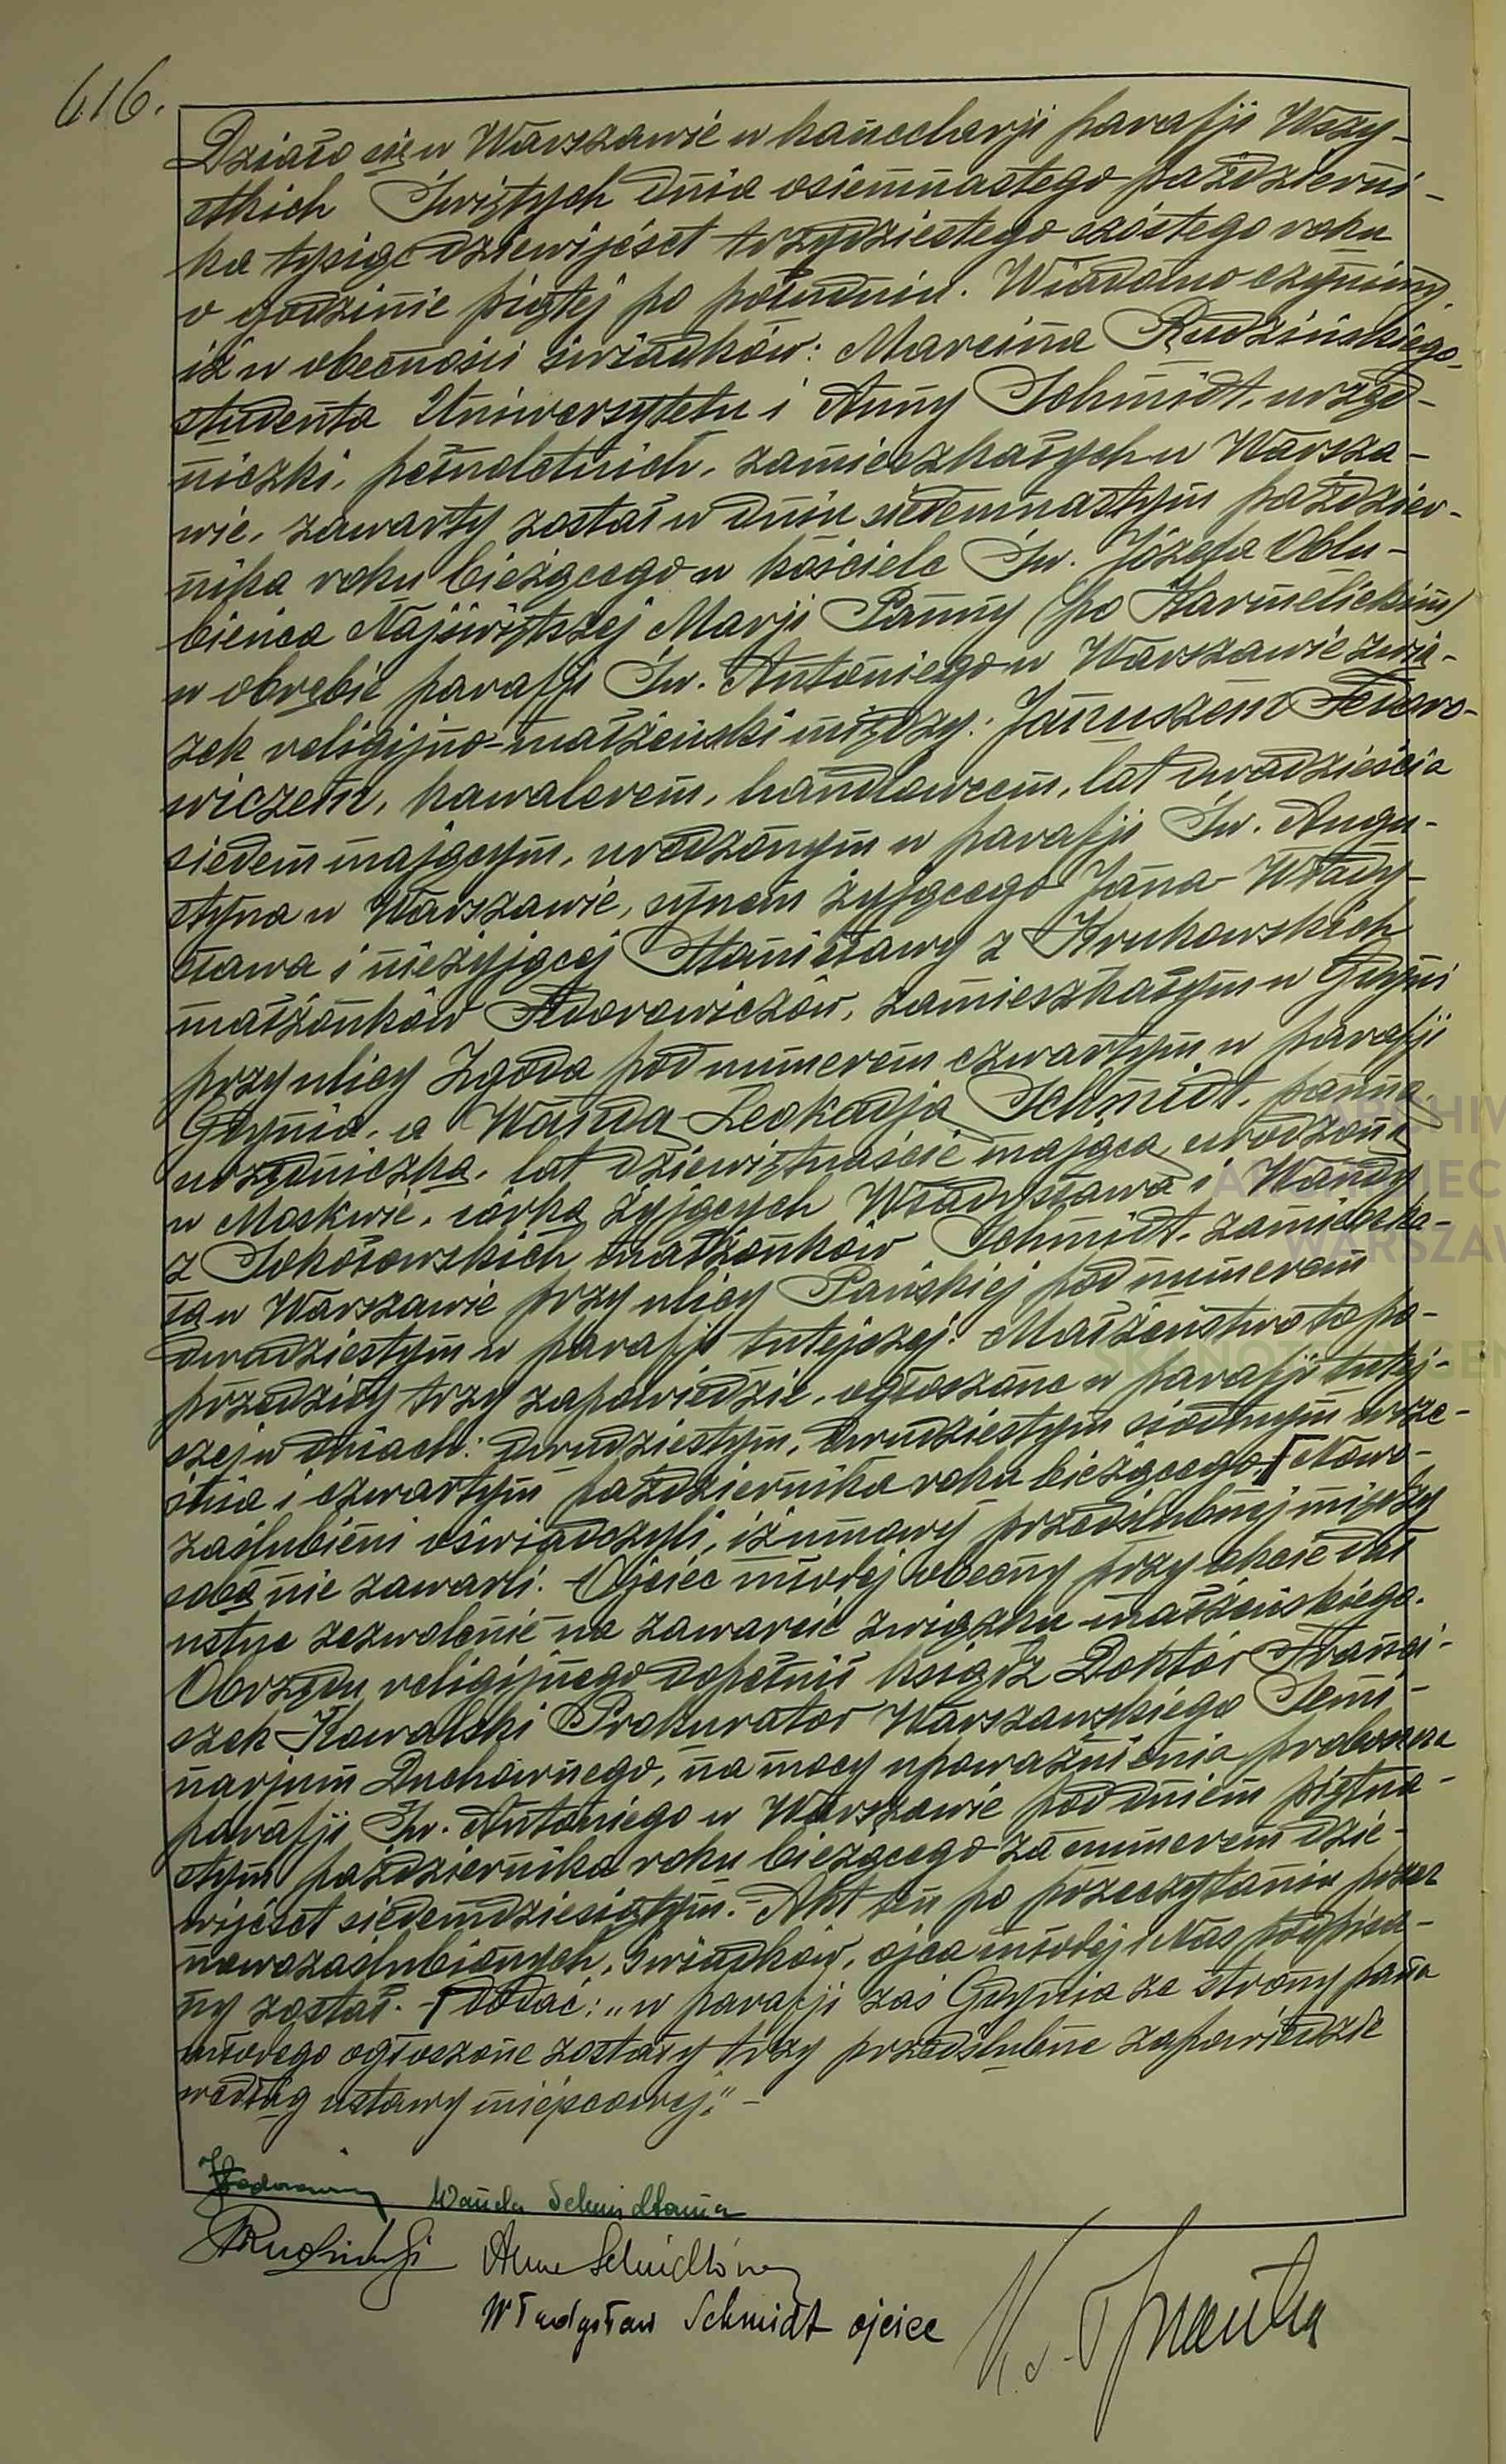 616.
Działo się w Warszawie w kancelarji parafji Wszy-
stkich Świętych dnia osiemnastego październi-
ka tysiąc dziewięćset trzydziestego szóstego roku
o godzinie piątej po południu. Wiadomo czynimy,
iż w obecności świadków: Marcina Rudzińskiego,
studenta Uniwersytetu i Anny Schmidt, urzęd-
niczki, pełnoletnich, zamieszkałych w Warsza-
wie, zawarty został w dniu siedemnastym paździer-
nika roku bieżącego w kościele Św. Józefa Oblu-
bieńca Najświętszej Marji Panny (po Karmelickim)
w obrębie parafji Św. Antoniego w Warszawie zwią-
zek religijno-małżeński między: Januszem Fedoro-
wiczem, kawalerem, handlowcem, lat dwadzieścia
siedem mającym, urodzonym w parafji Św. Augu-
styna w Warszawie, synem żyjącego Jana Włady-
sława i nieżyjącej Stanisławy z Krukowskich
małżonków Fedorowiczów, zamieszkałym w Gdyni
przy ulicy Zgoda pod numerem czwartym w parafji
Gdynia, a Wandą Leokadją Schmidt, panną
urzędniczką, lat dziewiętnaście mającą, urodzoną
w Moskwie, córką żyjących Władysława i Wandy
z Sokołowskich małżonków Schmidt, zamieszka-
łą w Warszawie przy ulicy Pańskiej pod numerem
dwudziestym w parafji tutejszej. Małżeństwo to po-
przedziły trzy zapowiedzie, ogłoszone w parafji tutej-
szej w dniach: dwudziestym, dwudziestym siódmym wrze-
śnia i czwartym października roku bieżącego. Nowo-
zaślubieni oświadczyli, iż umowy przedślubnej między
sobą nie zawarli. Ojciec młodej obecny przy akcie dał
ustne zezwolenie na zawarcie związku małżeńskiego.
Obrzędu religijnego dopełnił ksiądz Doktór Franci-
szek Kowalski Prokurator Warszawskiego Semi-
narjum Duchownego, na mocy upoważnienia proboszcza
parafji Św. Antoniego w Warszawie pod dniem piętna-
stym października roku bieżącego za numerem dzie-
więćset siedemdziesiątym. Akt ten po przeczytaniu przez
nowozaślubionych, świadków, ojca młodej i Nas podpisa-
ny został. - dodać: „w parafji zaś Gdynia ze strony pana
młodego ogłoszone zostały trzy przedślubne zapowiedzie
według ustawy miejscowej." -
JFedorowicz Wanda Schmidtówna
MRudziński Anna Schmidtówna
Władysław Schmidt ojciec